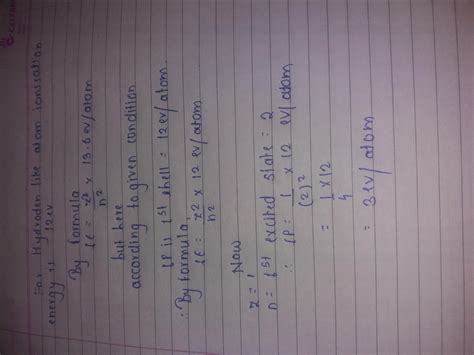 For Hydrogen like atom ionisation
energy is 12ev
By formula
IE = z² / n² x 13.6 ev/atom
but here
according to given condition
IP is 1st shell = 12 ev/atom.
∴ By formula,
IE = z² / n² x 12 ev/atom
Now
z = 1
n = 1st excited state = 2
∴ IP = 1 / (2)² x 12 ev/atom
= 1 / 4 x 12
= 3 ev/atom